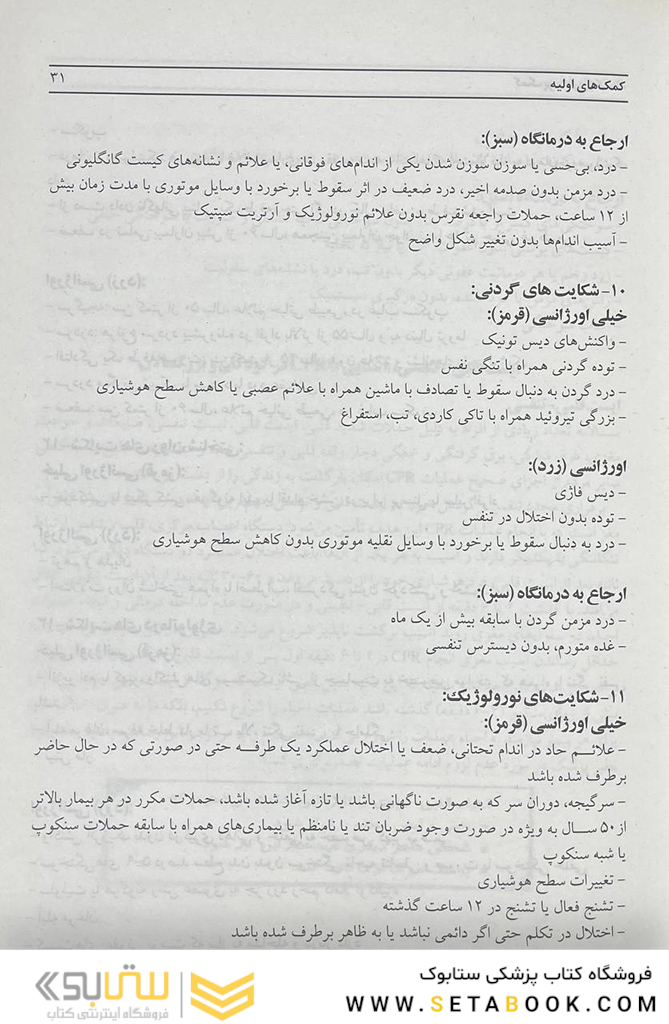 کمک‌های اولیه ۳۱
ارجاع به درمانگاه (سبز):
– درد، بی‌حسی یا سوزن سوزن شدن یکی از اندام‌های فوقانی، یا علائم و نشانه‌های کیست گانگلیونی
– درد مزمن بدون صدمه اخیر، درد ضعیف در اثر سقوط یا برخورد با وسایل موتوری با مدت زمان بیش
از ۱۲ ساعت، حملات راجعه نقرس بدون علائم نورولوژیک و آرتریت سپتیک
– آسیب اندام‌ها بدون تغییر شکل واضح
۱۰- شکایت های گردنی:
خیلی اورژانسی (قرمز):
– واکنش‌های دیس تونیک
– توده گردنی همراه با تنگی نفس
– درد گردن به دنبال سقوط یا تصادف با ماشین همراه با علائم عصبی یا کاهش سطح هوشیاری
– بزرگی تیروئید همراه با تاکی کاردی، تب، استفراغ
اورژانسی (زرد):
– دیس فاژی
– توده بدون اختلال در تنفس
– درد به دنبال سقوط یا برخورد با وسایل نقلیه موتوری بدون کاهش سطح هوشیاری
ارجاع به درمانگاه (سبز):
– درد مزمن گردن با سابقه بیش از یک ماه
– غده متورم، بدون دیسترس تنفسی
۱۱- شکایت‌های نورولوژیک:
خیلی اورژانسی (قرمز):
– علائم حاد در اندام تحتانی، ضعف یا اختلال عملکرد یک طرفه حتی در صورتی که در حال حاضر
برطرف شده باشد
– سرگیجه، دوران سر که به صورت ناگهانی باشد یا تازه آغاز شده باشد، حملات مکرر در هر بیمار بالاتر
از ۵۰ سال به ویژه در صورت وجود ضربان تند یا نامنظم یا بیماری‌های همراه با سابقه حملات سنکوپ
یا شبه سنکوپ
– تغییرات سطح هوشیاری
– تشنج فعال یا تشنج در ۱۲ ساعت گذشته
– اختلال در تکلم حتی اگر دائمی نباشد یا به ظاهر برطرف شده باشد
فروشگاه کتاب پزشکی ستابوک
WWW.SETABOOK.COM
ستابوک
فروشگاه اینترنتی کتاب